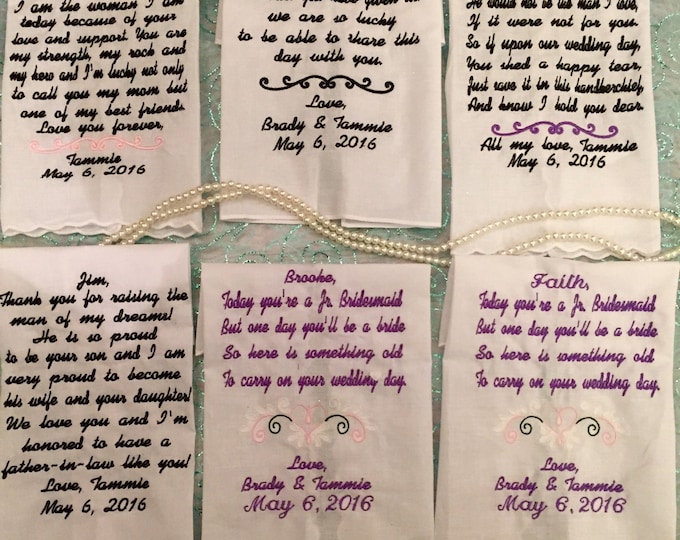 I am the woman I am
today because of your
love and support. You are
my strength, my rock and
my hero and I'm lucky not only
to call you my mom but
one of my best friends.
Love you forever,
Tammie
May 6, 2016
we are so lucky
to be able to share this
day with you.
Love,
Brady & Tammie
May 6, 2016
He would not be the man I love,
If it were not for you.
So if upon our wedding day,
You shed a happy tear,
Just save it in this handkerchief,
And know I hold you dear.
All my love, Tammie
May 6, 2016
Jim,
Thank you for raising the
man of my dreams!
He is so proud
to be your son and I am
very proud to become
his wife and your daughter!
We love you and I'm
honored to have a
father-in-law like you!
Love, Tammie
May 6, 2016
Brooke,
Today you're a Jr. Bridesmaid
But one day you'll be a bride
So here is something old
To carry on your wedding day.
Love,
Brady & Tammie
May 6, 2016
Faith,
Today you're a Jr. Bridesmaid
But one day you'll be a bride
So here is something old
To carry on your wedding day.
Love,
Brady & Tammie
May 6, 2016